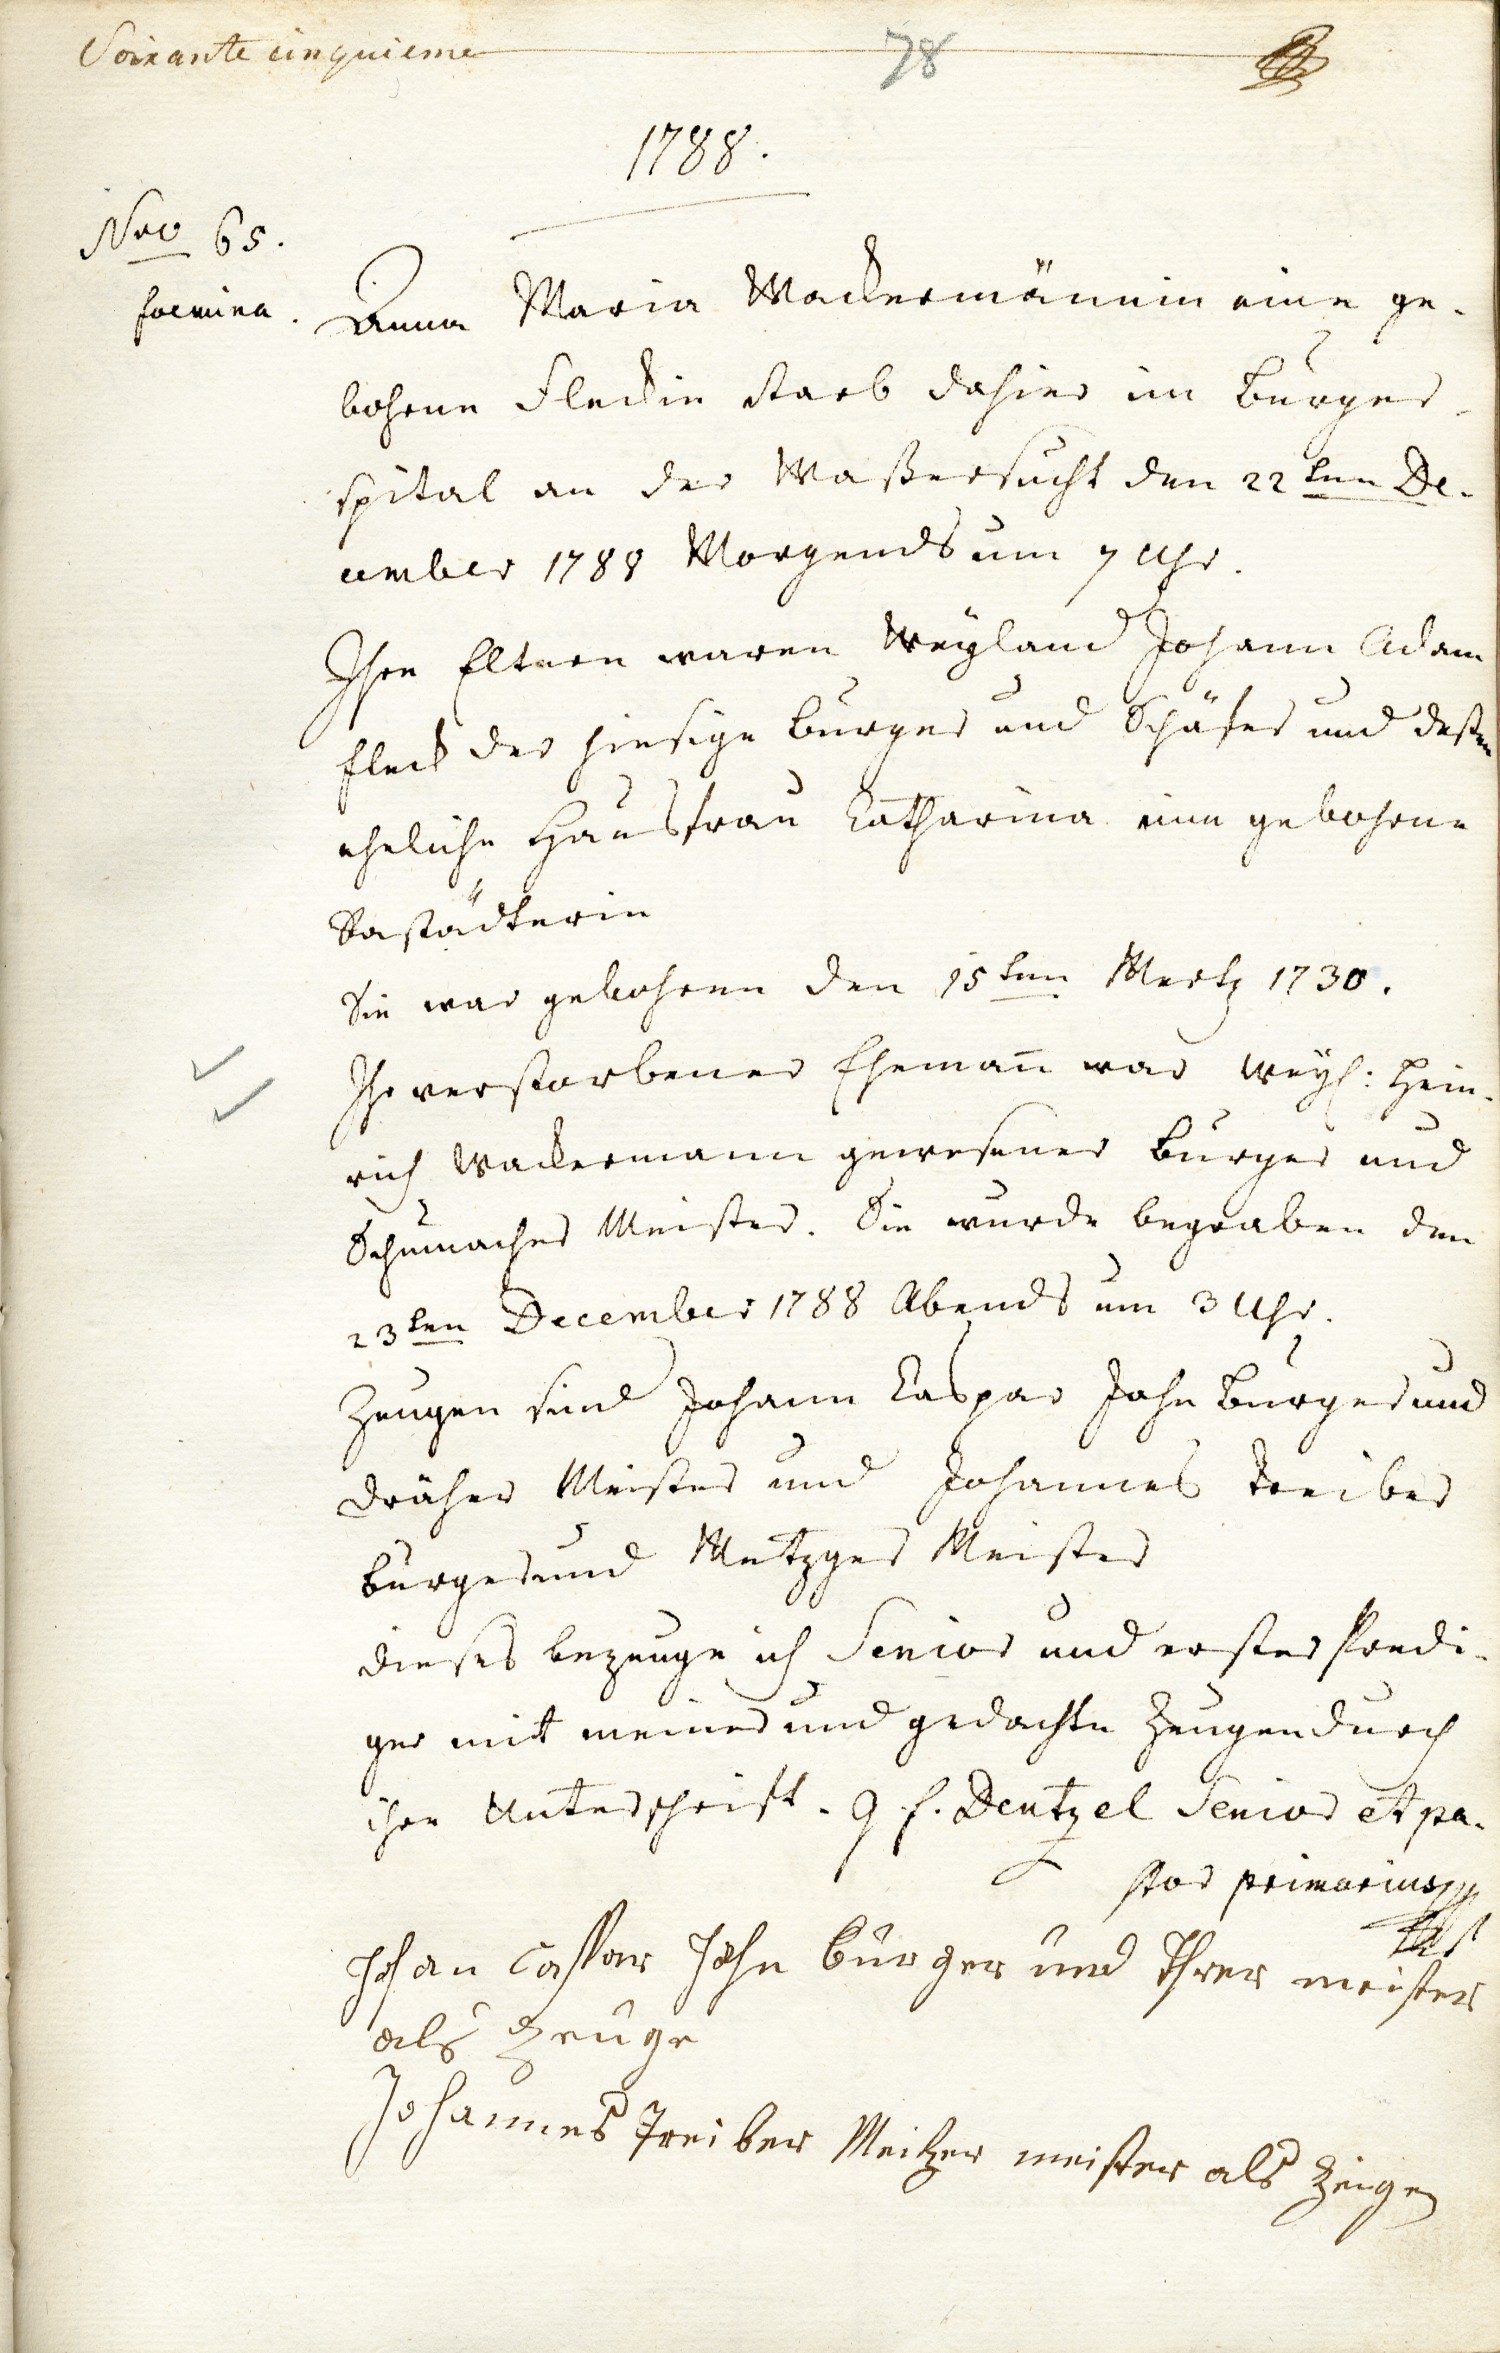 Soixante cinquieme
78
1788.
Nro 65.
foemina.
Anna Maria Wackermännin eine ge-
bohrne Fleckin starb dahier im Burger-
spital an der Waßersucht den 22ten De-
cember 1788 Morgends um 7 Uhr.
Ihre Eltern waren Weyland Johann Adam
Fleck der hiesige burger und Schäfer und deßen
eheliche Hausfrau Catharina eine gebohrne
Sie war gebohren den 15ten Mertz 1730.
Ihr verstorbener Ehemañ war weyl: Hein-
rich Wackermann gewesener burger und
Schumacher Meister. Sie wurde begraben den
23ten December 1788 Abends um 3 Uhr.
Zeugen sind Johann Caspar Jahn burger und
Dräher Meister und Johannes Treiber
burger und Metzger Meister
dieses bezeuge ich Senior und erster Predi-
ger mit meiner und gedachte Zeugen durch
ihre Unterschrift. G. F. Dentzel Senior et pa-
stor primarius
Johan Caspar Jahn bürger und Threr meister
als Zeuge
Johannes Treiber Meitzer meister als Zeige